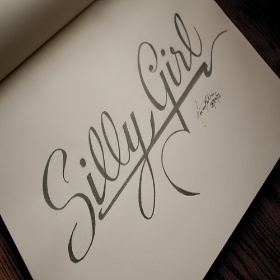 Silly Girl